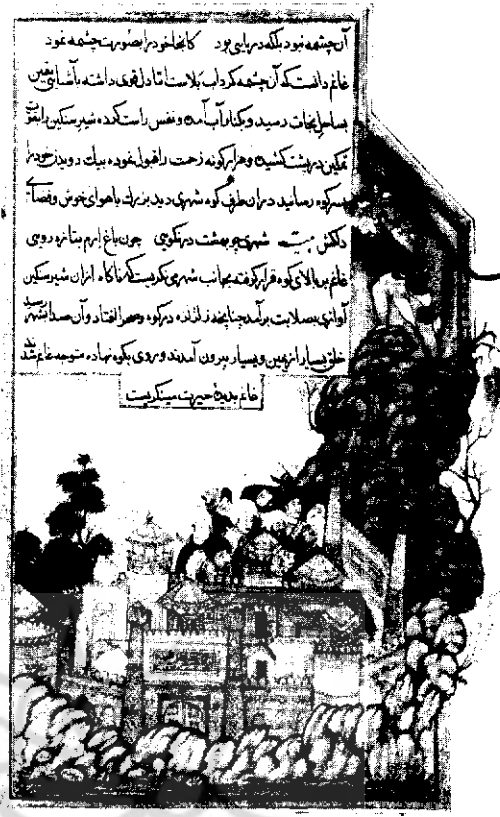 آن چشمه نبود بلکه دریایی بود کانجا خود را بصورت چشمه نمود
غانم دانست که آن چشمه گرداب بلاست اما دل قوی داشته بآشنایی یقین
بساحل نجات رسید و بکنار آب آمده و نفس راست کرده شیر سنگین را بقوت
تمکین در پشت کشیده و هزار گونه زحمت را قبول نموده بیک دویدن خود را
بسر کوه رسانید در آن طرف کوه شهری دید بزرگ با هوای خوش و فضای
دلکش بیت شهری چو بهشت در نکویی چون باغ ارم بتازه رویی
غانم بر بالای کوه قرار گرفته بجانب شهر می نگریست که ناگاه از آن شیر سنگین
آوازی بصلابت برآمد چنانچه زلزله در کوه و صحرا افتاد و آن صدا بشهر رسید
خلق بسیار از یمین و یسار بیرون آمدند و روی بکوه نهاده متوجه غانم شد
غانم بدیده حیرت مینگریست